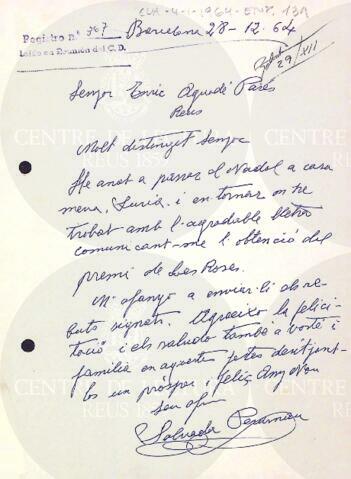 CUA-4-1-1964-ENP. 139
Registro nº 967 Barcelona 28-12-64
Leído en Reunión del C.D.
29/XII
Senyor Enric Aguadé Parés
Reus
Molt distingit senyor
He anat a passar el Nadal a casa
meva, Suria i en tornar m'he
trobat amb l'agradable lletra
comunicant-me l'obtenció del
premi de les Roses.
M'afanyo a enviar-li els re-
buts signats. Agraeixo la felici-
tació i els saludo també a vostè i
família en aquestes festes desitjant-
los un pròsper i feliç Any Nou
Seu afm
Salvador Perarnau
CENTRE DE LECTURA
REUS 1859